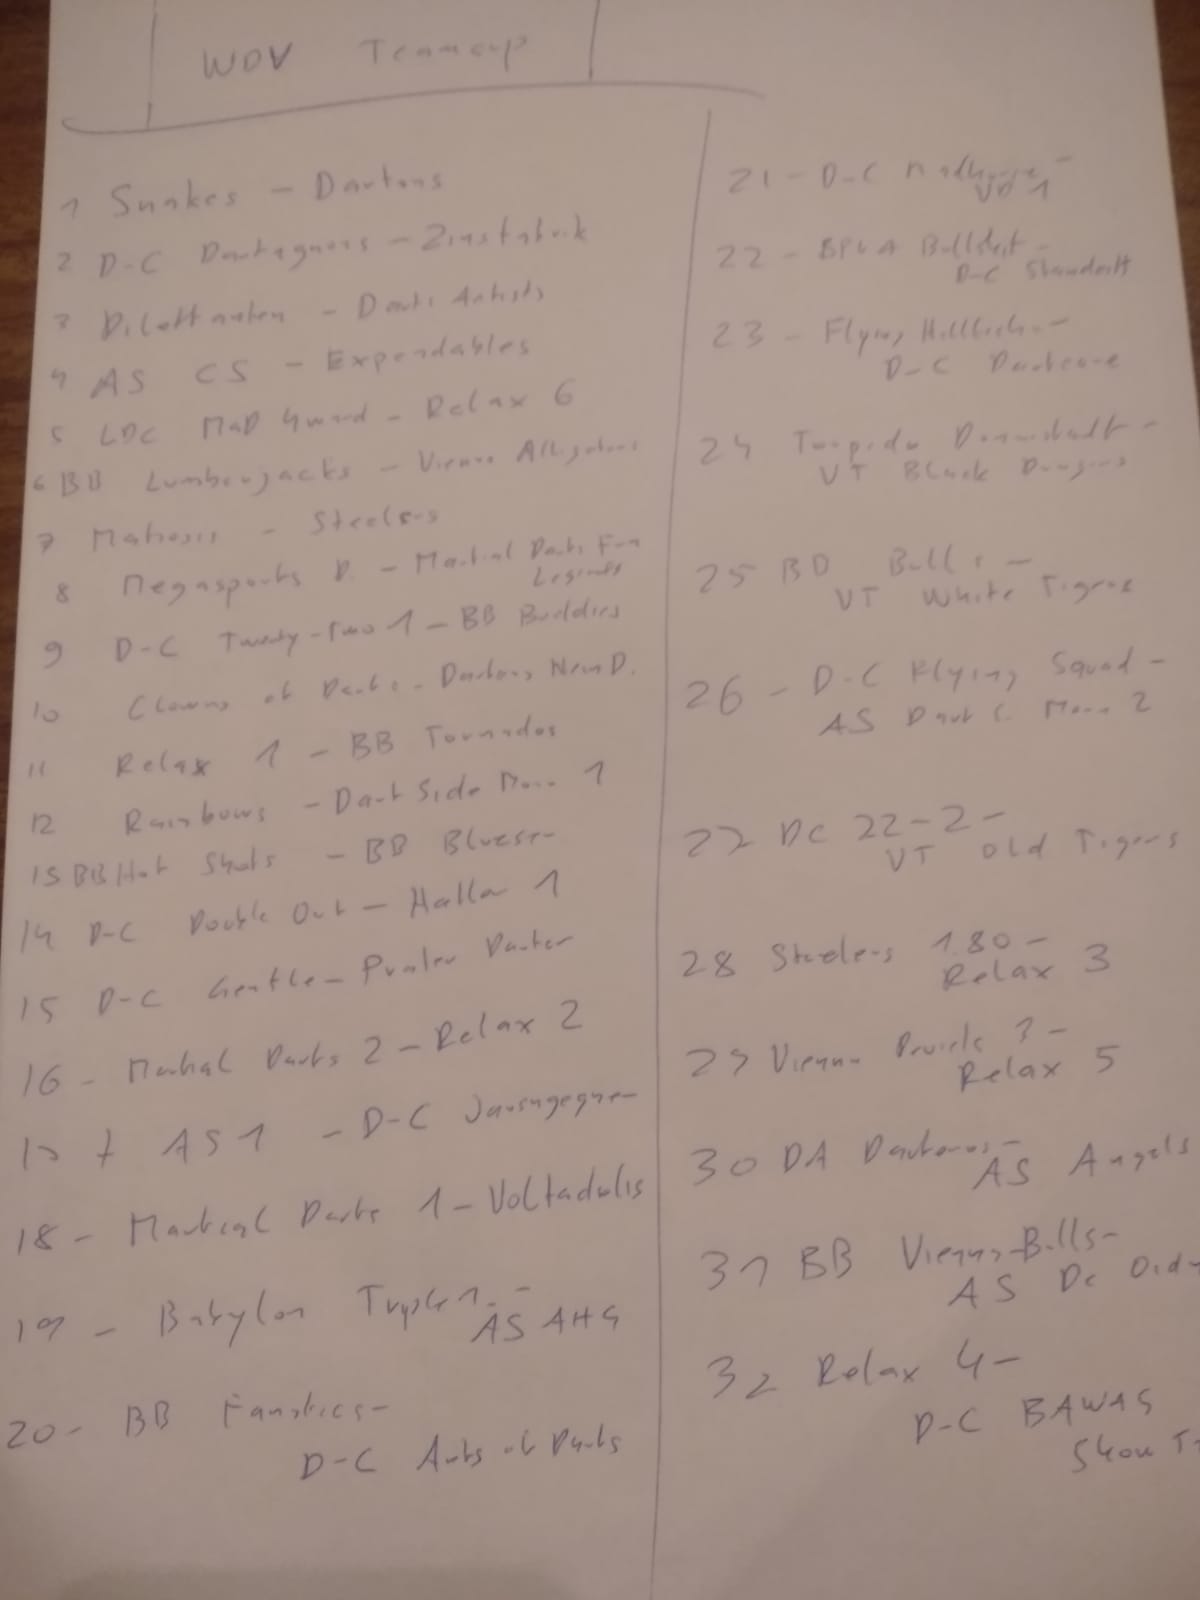 WDV Teamcup
1 Snakes - Dartons
2 D-C Dartagnons - Zinsfabrik
3 Dilettanten - Darts Artists
4 AS CS - Expendables
5 LDC MaD 4ward - Relax 6
6 BB Lumberjacks - Vienna Alligators
7 - Steelers
8 Megasports D. - Martial Darts Fun
Legends
9 D-C Twenty-Two 1 - BB Buddies
10 Clowns of Darts - Dartons New D.
11 Relax 1 - BB Tornados
12 Rainbows - Dart Side 1
13 BB Hot Shots - BB
14 D-C Double Out - Halla 1
15 D-C Gentle - Darter
16 - Martial Darts 2 - Relax 2
17 AS 1 - D-C
18 - Martial Darts 1 - Voltadulis
19 - Babylon -
AS AHS
20 - BB Fanatics -
D-C Arts of Darts
21 - D-C -
1
22 - Bullshit -
D-C
23 - Flying -
D-C Dartcore
24 Torpedo -
VT Black
25 BD Bulls -
VT White Tigers
26 - D-C Flying Squad -
AS Dart 2
27 DC 22-2 -
VT Old Tigers
28 Steelers 180 -
Relax 3
29 Vienna -
Relax 5
30 DA -
AS Angels
31 BB Vienna-Bulls -
AS DC
32 Relax 4 -
D-C BAWAG
Show